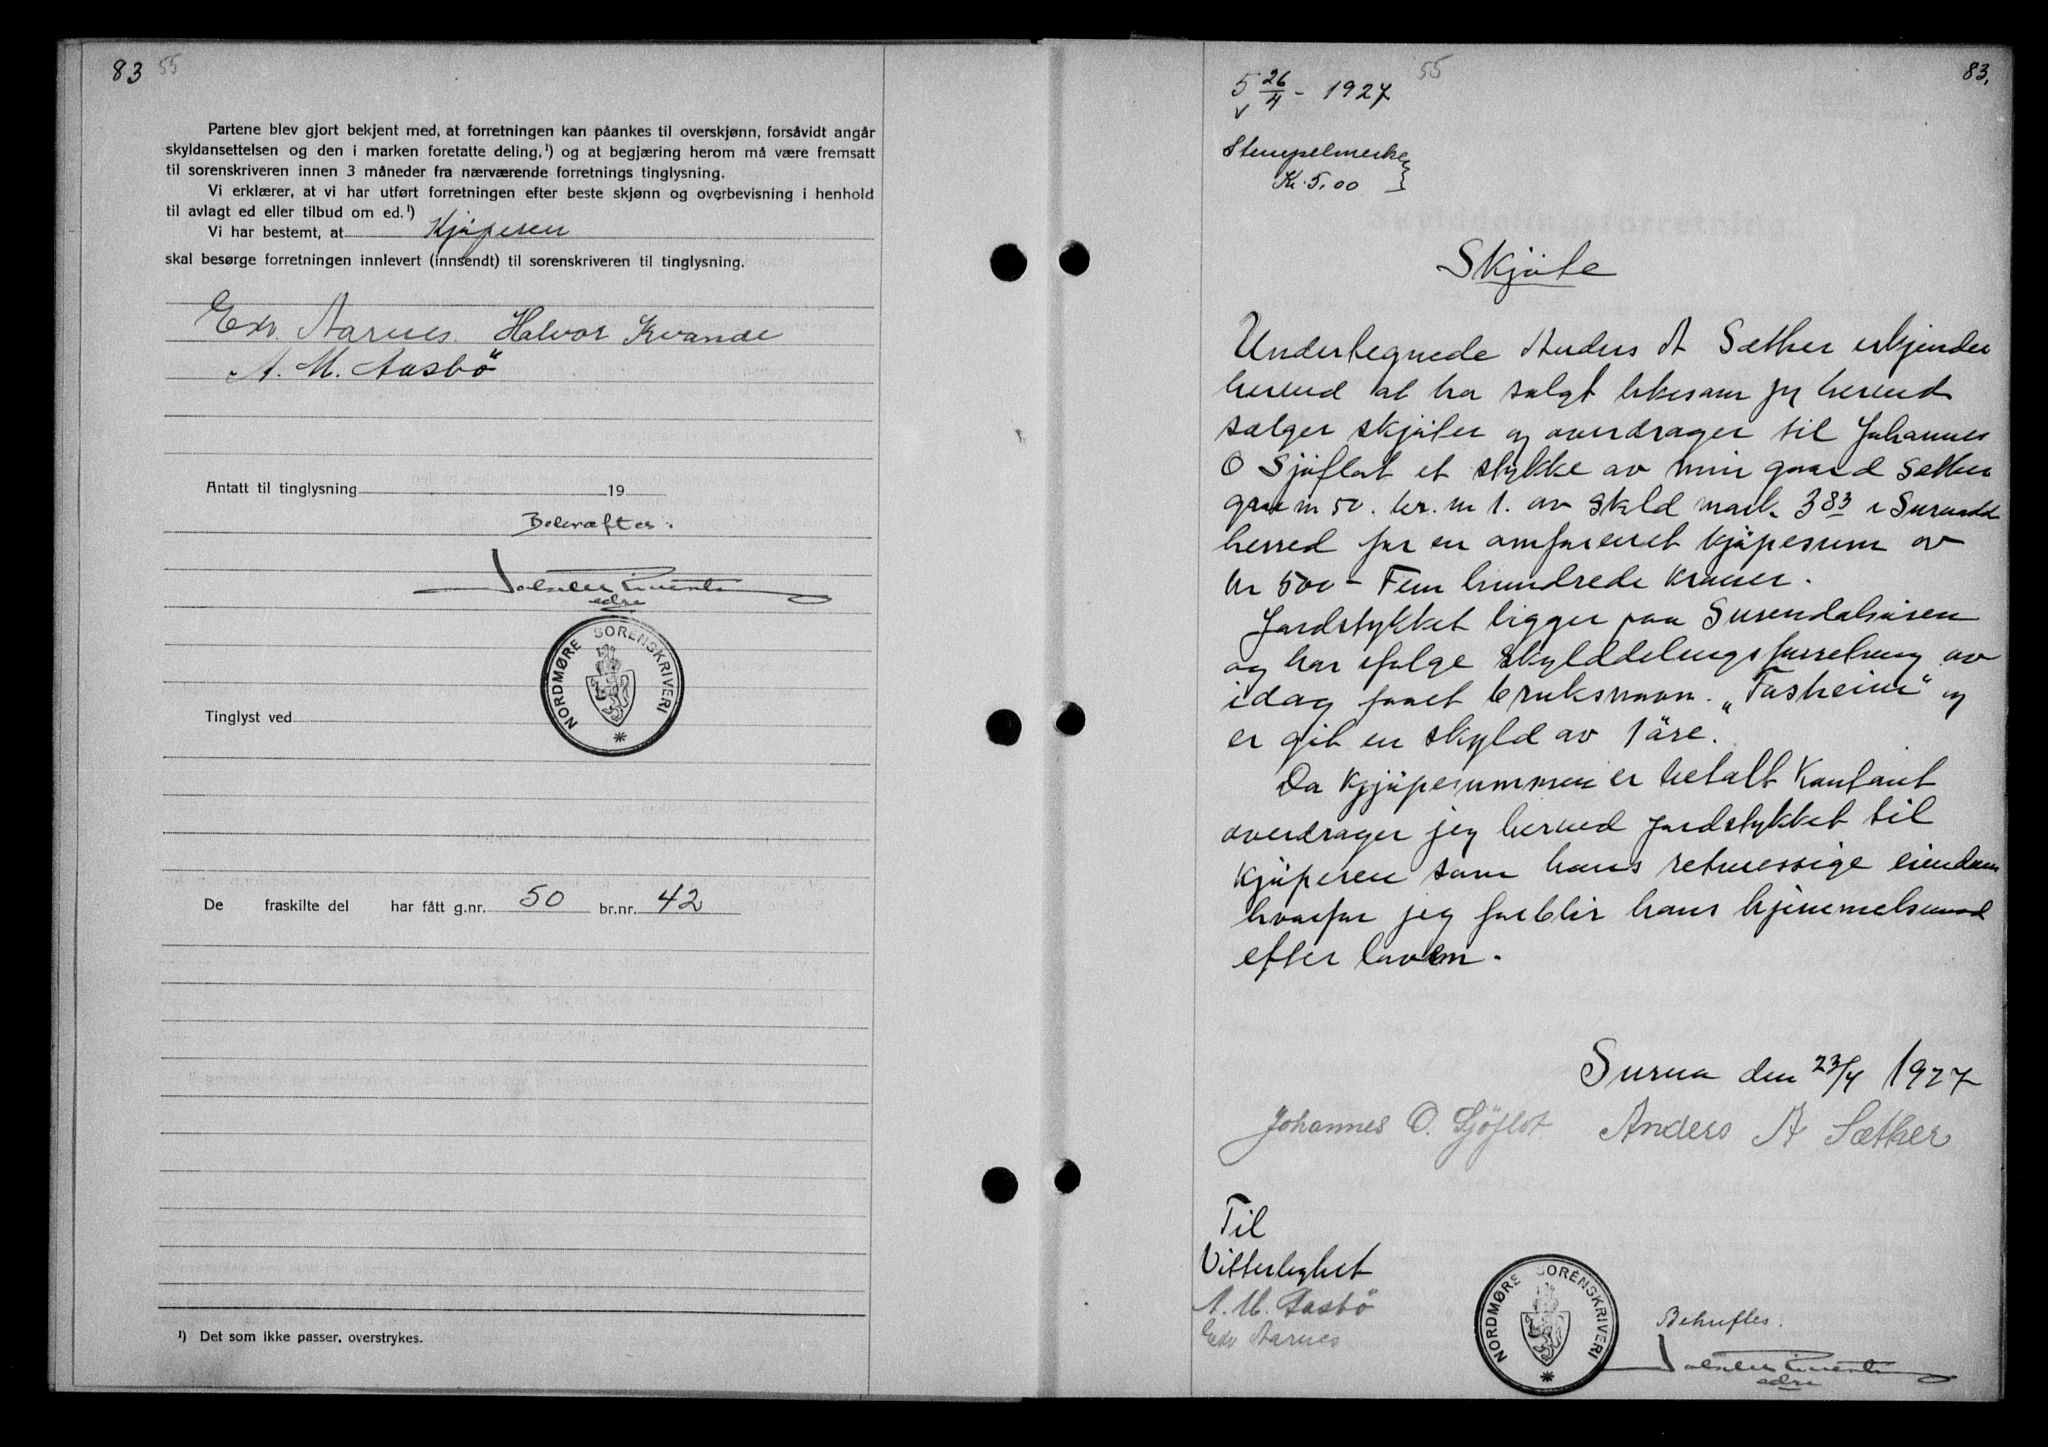 83 55
Partene blev gjort bekjent med, at forretningen kan påankes til overskjønn, forsåvidt angår
skyldansettelsen og den i marken foretatte deling,¹) og at begjæring herom må være fremsatt
til sorenskriveren innen 3 måneder fra nærværende forretnings tinglysning.
Vi erklærer, at vi har utført forretningen efter beste skjønn og overbevisning i henhold
til avlagt ed eller tilbud om ed.¹)
Vi har bestemt, at Kjöperen
skal besørge forretningen innlevert (innsendt) til sorenskriveren til tinglysning.
Edv. Aarnes. Halvor Kvande
A. M. Aasbö
Antatt til tinglysning 19
Bekræftes.
edre
NORDMØRE SORENSKRIVERI
Tinglyst ved
De fraskilte del har fått g.nr. 50 br.nr. 42
¹) Det som ikke passer, overstrykes.
55 83.
5 26/4 - 1927
Stempelmerke
Kr. 5.00
Skjöte
Undertegnede Anders A Sæther erkjender
herved at ha solgt likesom jeg herved
sælger skjöter og overdrager til Johannes
O Sjöflot et stykke av min gaard Sæther
gr. n 50. br. n 1. av skyld mark 3 83 i Surendal
herred for en omforenet kjöpesum av
kr 500 - Fem hundrede kroner.
Jordstykket ligger paa Surendalsören
og har ifølge skylddelingsforretning av
idag faaet bruksnavn. „Fasheim" og
er git en skyld av 1 öre.
Da kjöpesummen er betalt kontant
overdrager jeg herved jordstykket til
kjöperen som hans retmessige eiendom
hvorfor jeg forblir hans hjemmelsmand
efter loven.
Surna den 23/4 1927
Johannes O. Sjöflot. Anders A Sæther
Til
Vitterlighet
A. M. Aasbö
Edv Aarnes
NORDMØRE SORENSKRIVERI
Bekræftes.
edre